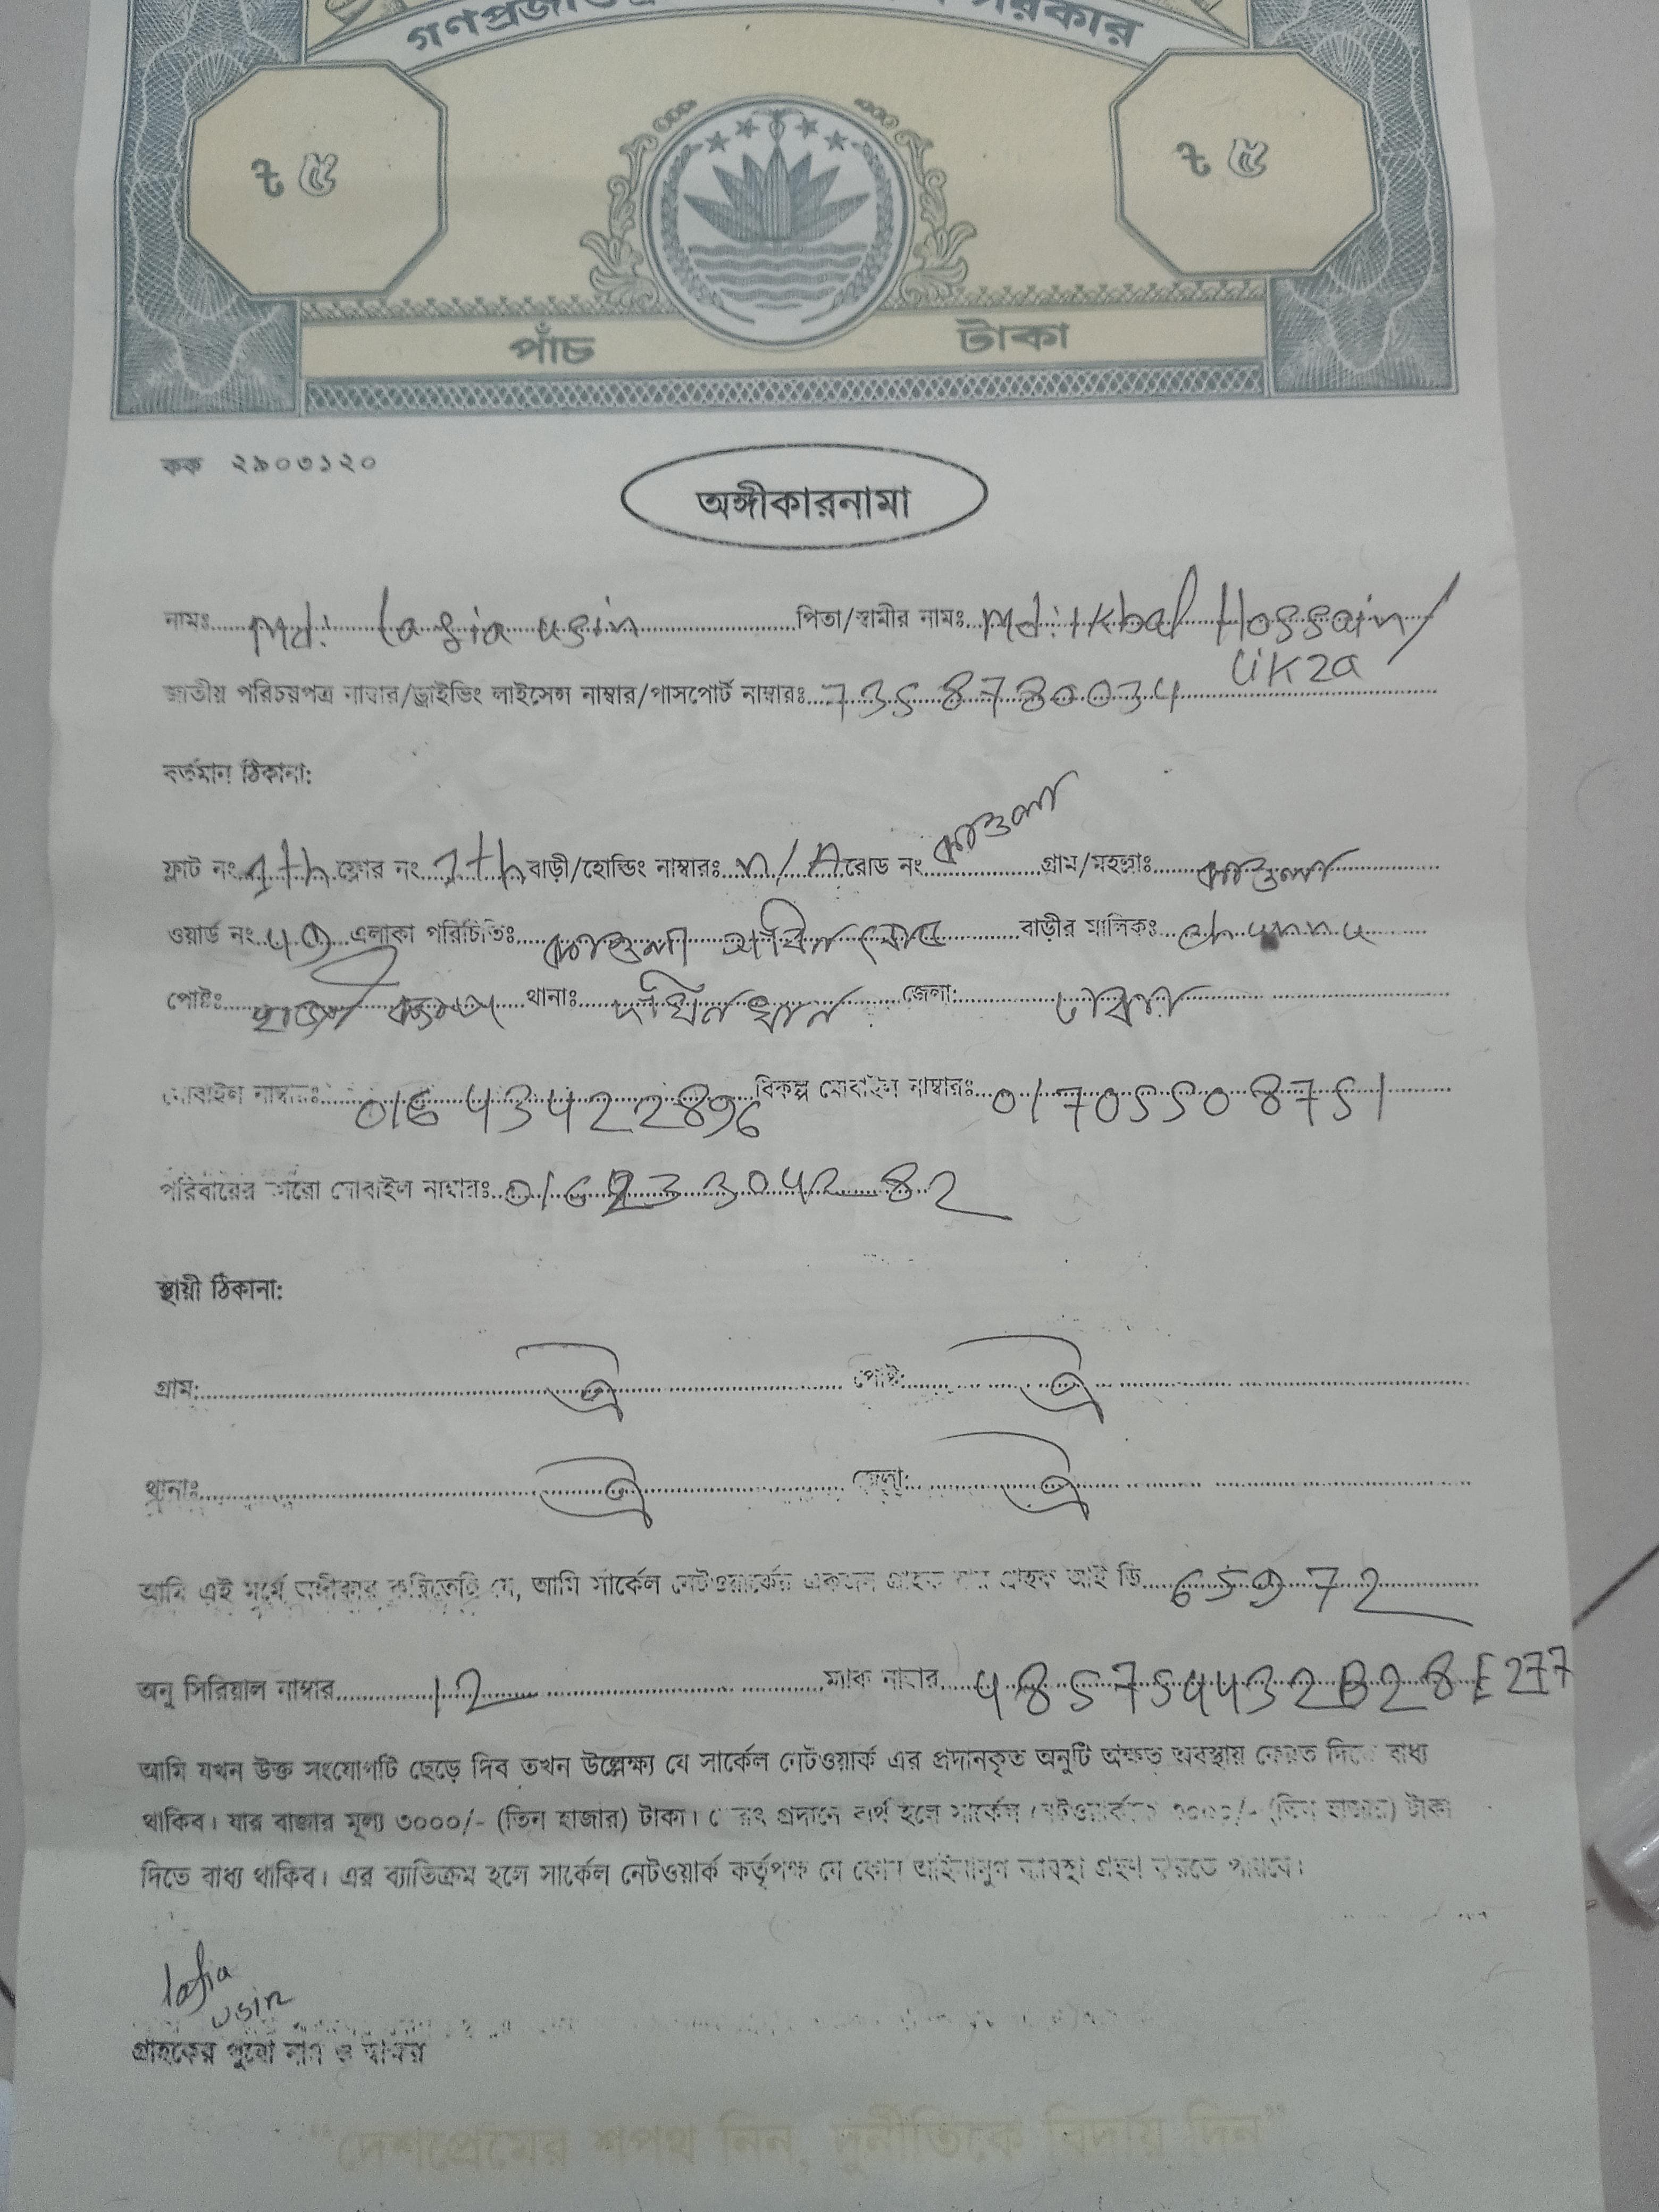 ৳ ৫ ৳ ৫
পাঁচ টাকা
কক ২৯০৩১২০
অঙ্গীকারনামা
নামঃ Md: lasia usin পিতা/স্বামীর নামঃ Md: Ikbal Hossain/
liKza
জাতীয় পরিচয়পত্র নাম্বার/ড্রাইভিং লাইসেন্স নাম্বার/পাসপোর্ট নাম্বারঃ 7358780034
বর্তমান ঠিকানা:
ফ্লাট নং 1th ফ্লোর নং 1th বাড়ী/হোল্ডিং নাম্বারঃ n/A রোড নং কাওলা গ্রাম/মহল্লাঃ কাওলা
ওয়ার্ড নং এলাকা পরিচিতিঃ কাওলা বাড়ীর মালিকঃ chunnu
পোষ্টঃ হাজী ক্যাম্প থানাঃ দখিনখান জেলা: ঢাকা
মোবাইল নাম্বারঃ 01643422896 বিকল্প মোবাইল নাম্বারঃ 01705508751
পরিবারের কারো মোবাইল নাম্বারঃ 01623304282
স্থায়ী ঠিকানা:
গ্রাম: ঐ পোষ্ট: ঐ
থানাঃ ঐ জেলা: ঐ
আমি এই মর্মে অঙ্গীকার করিতেছি যে, আমি সার্কেল নেটওয়ার্কের একজন গ্রাহক যার গ্রাহক আই ডি 65972
অনু সিরিয়াল নাম্বার 12 ম্যাক নাম্বার 485754432B28E277
আমি যখন উক্ত সংযোগটি ছেড়ে দিব তখন উল্লেক্ষ্য যে সার্কেল নেটওয়ার্ক এর প্রদানকৃত অনুটি অক্ষত অবস্থায় ফেরত দিতে বাধ্য
থাকিব। যার বাজার মূল্য ৩০০০/- (তিন হাজার) টাকা। ফেরৎ প্রদানে ব্যর্থ হলে সার্কেল নেটওয়ার্ককে ৩০০০/- (তিন হাজার) টাকা
দিতে বাধ্য থাকিব। এর ব্যাতিক্রম হলে সার্কেল নেটওয়ার্ক কর্তৃপক্ষ যে কোন আইনানুগ ব্যাবস্থা গ্রহণ করতে পারবে।
lasia
usin
গ্রাহকের পুরো নাম ও স্বাক্ষর
“দেশপ্রেমের শপথ নিন, দুর্নীতিকে বিদায় দিন”